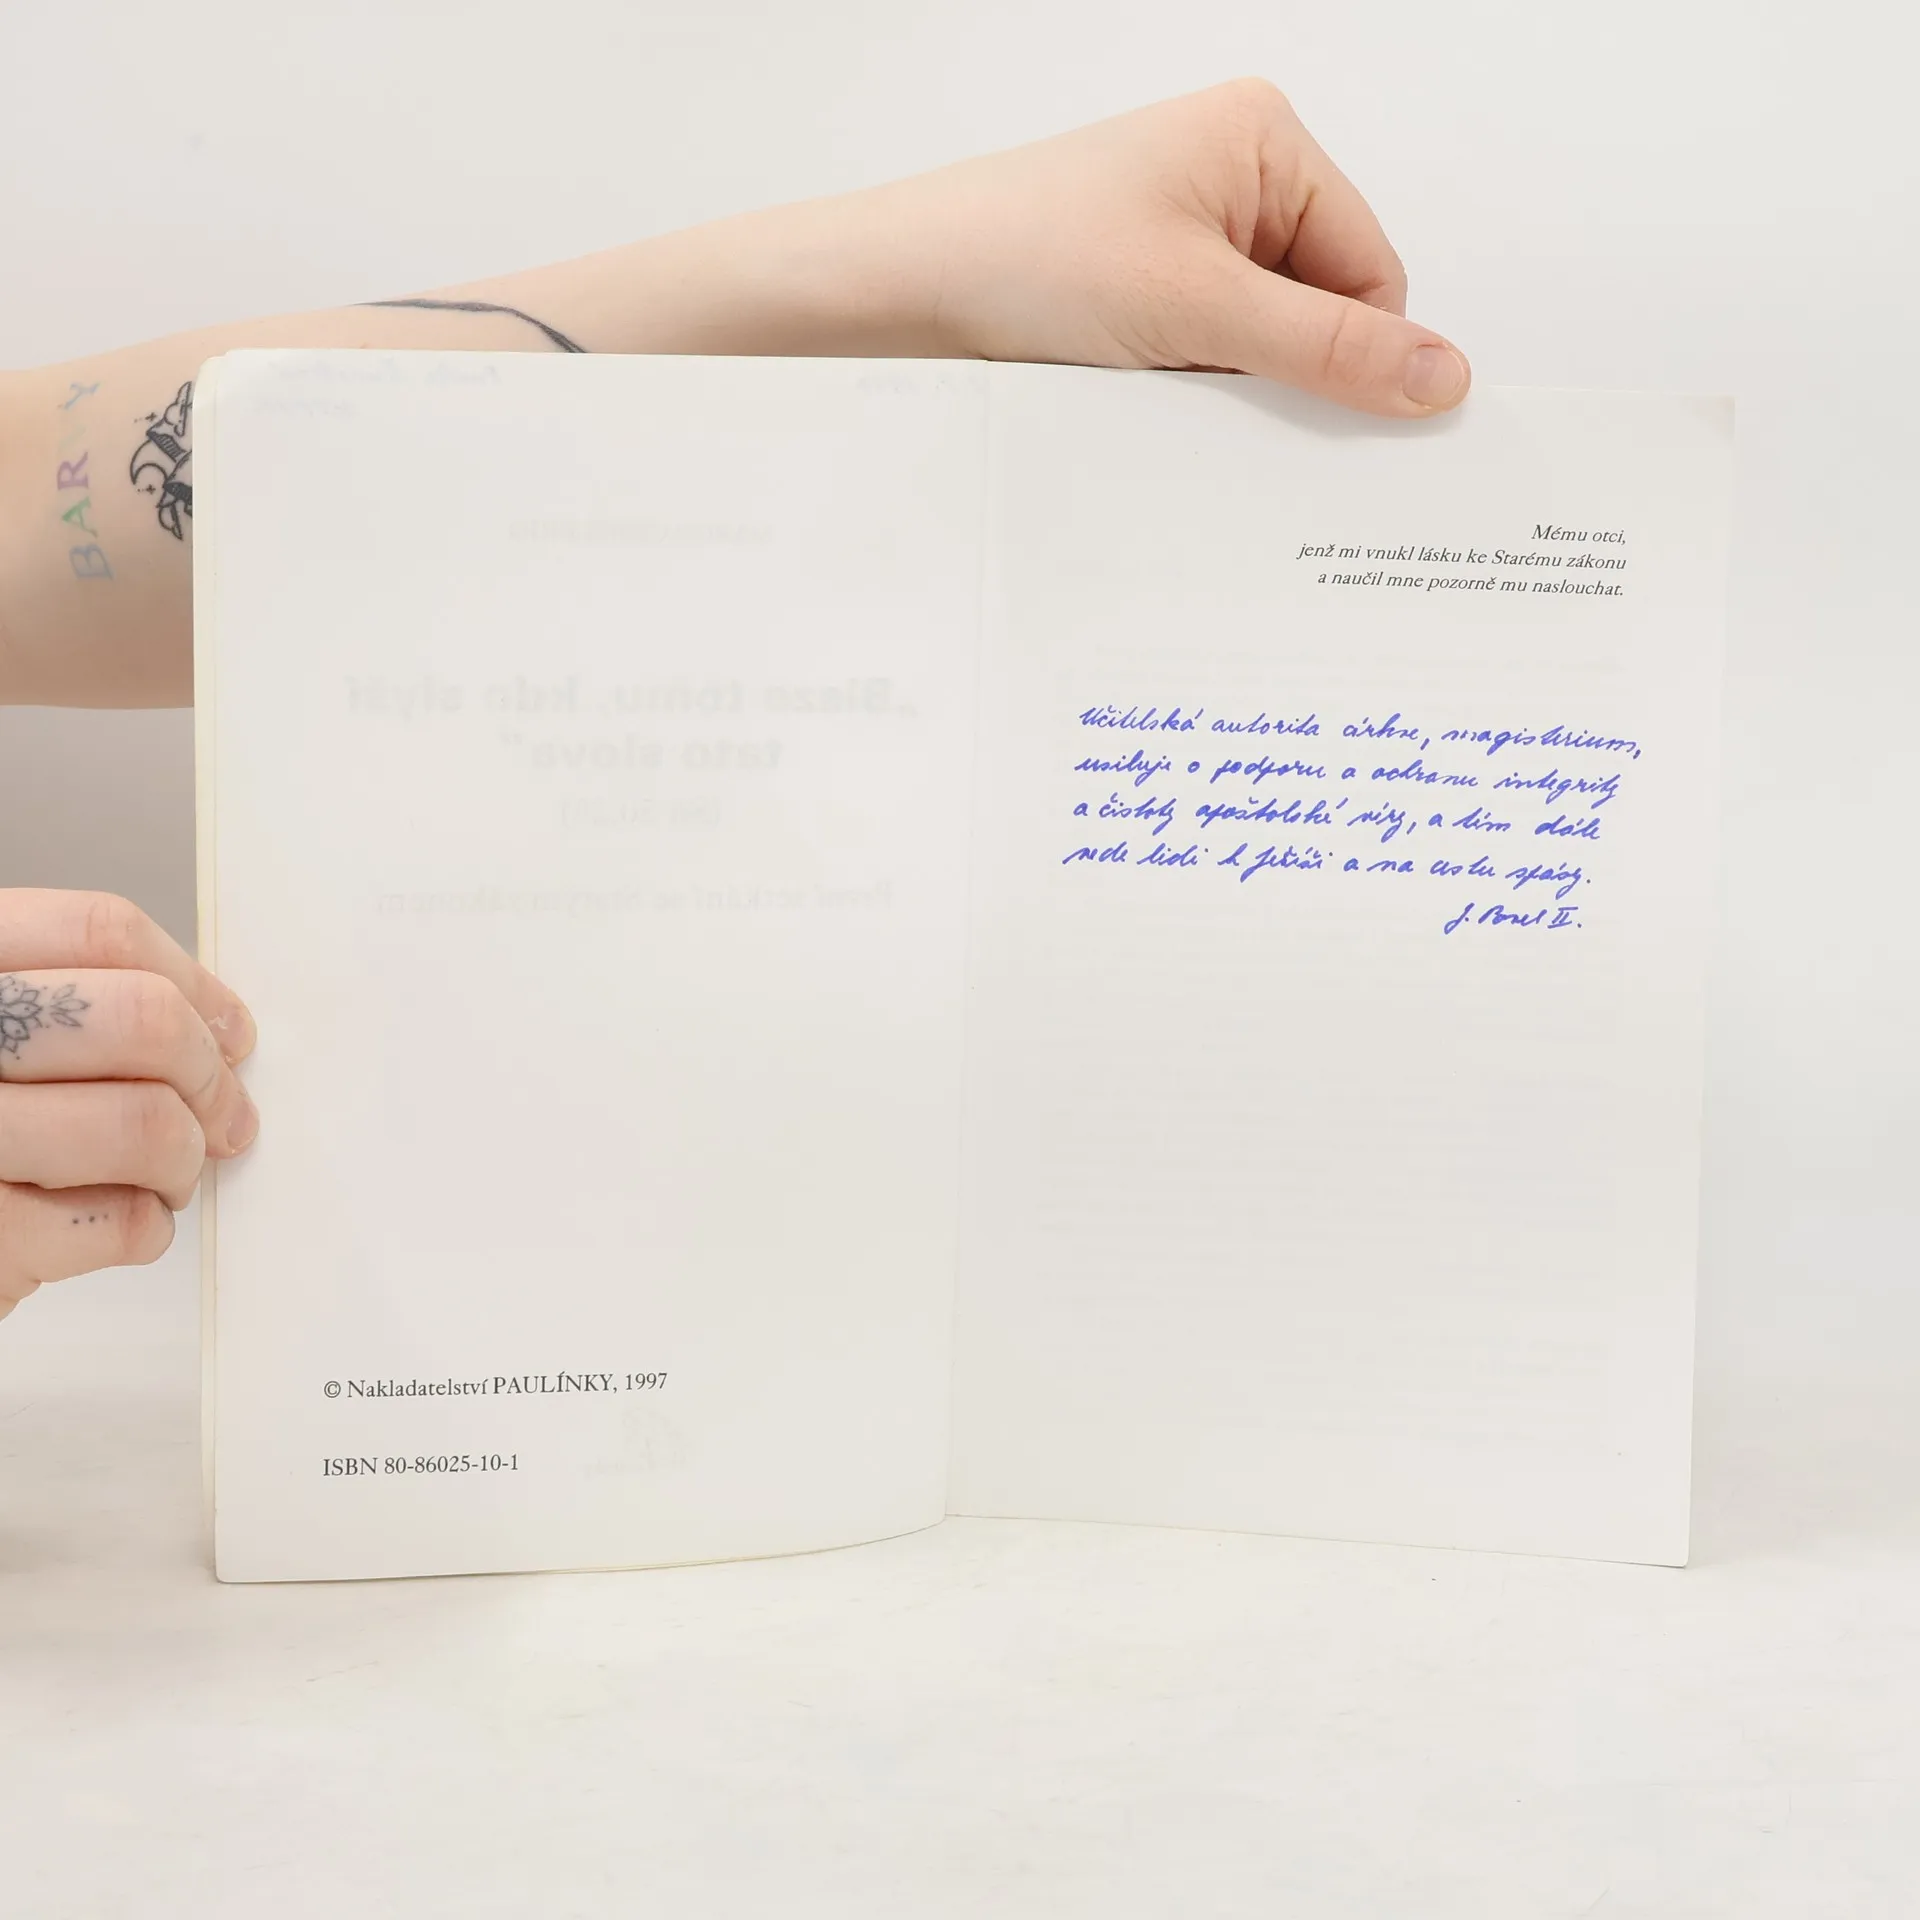 BARVY
© Nakladatelství PAULÍNKY, 1997
ISBN 80-86025-10-1
Mému otci,
jenž mi vnukl lásku ke Starému zákonu
a naučil mne pozorně mu naslouchat.
Učitelská autorita církve, magisterium,
usiluje o podporu a ochranu integrity
a čistoty apoštolské víry, a tím dále
vede lidi k Ježíši a na cestu spásy.
J. Pavel II.